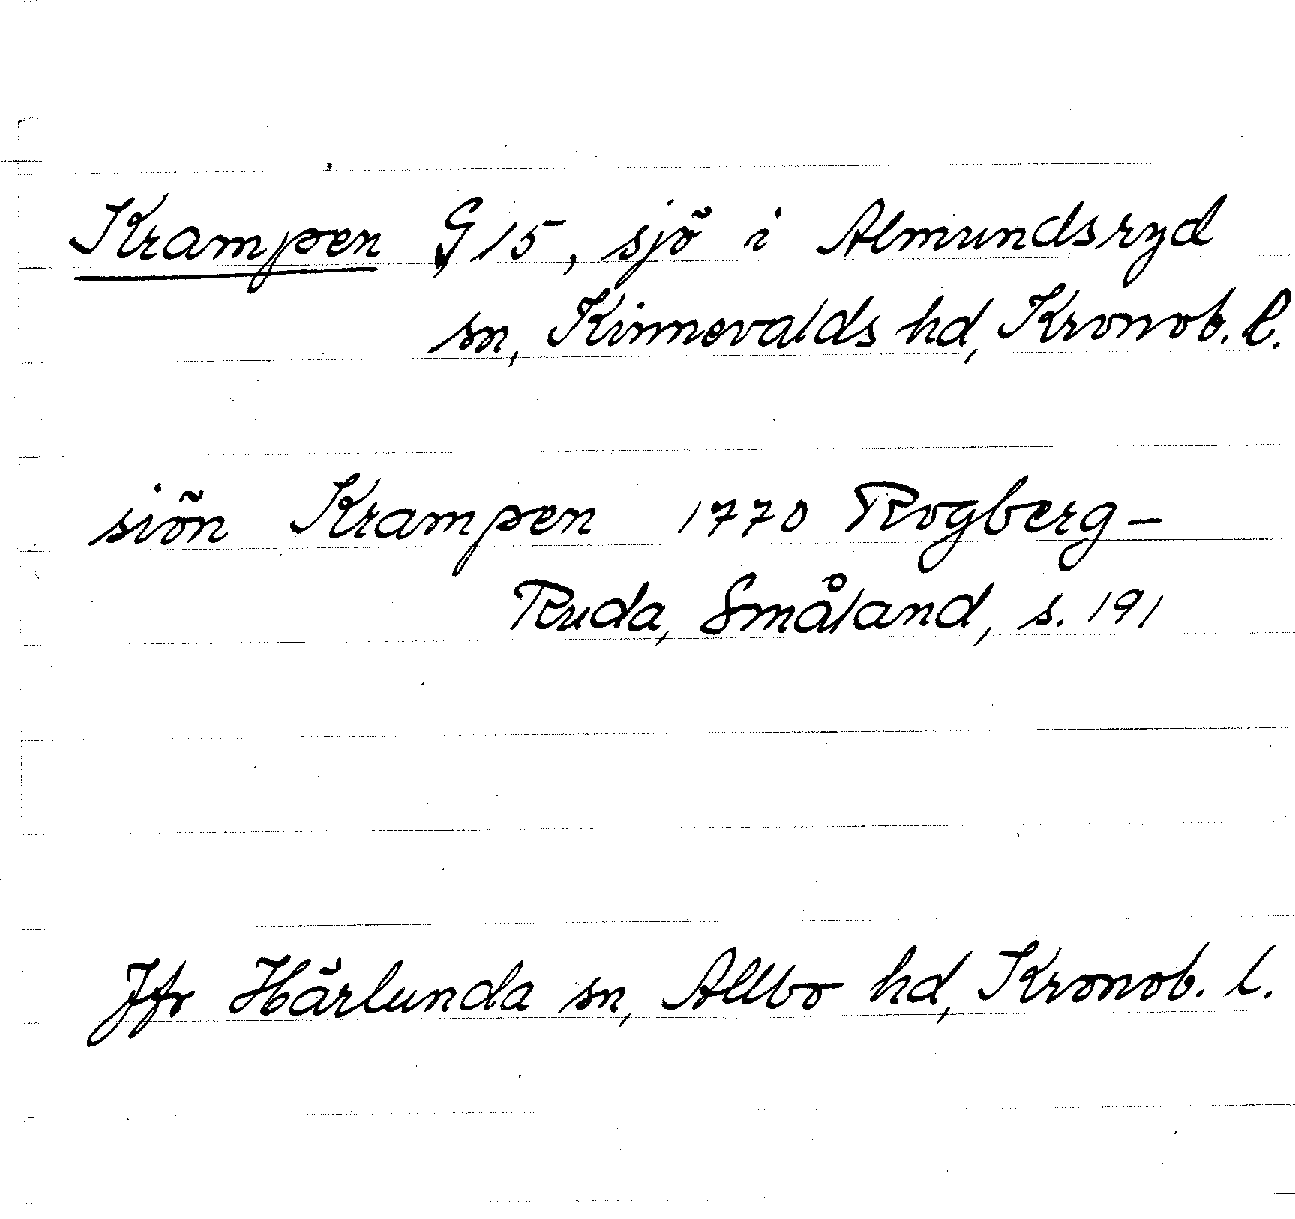 Krampen G15, sjö i Almundsryd
sn, Kinnevalds hd, Kronob. l.
siön Krampen 1770 Rogberg-
Ruda, Småland, s. 191
Jfr Härlunda sn, Allbo hd, Kronob. l.